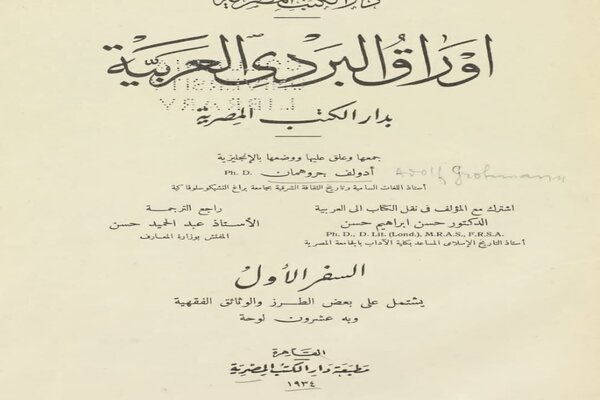 دار الكتب المصرية
أوراق البردي العربية
بدار الكتب المصرية
جمعها وعلق عليها ووضعها بالإنجليزية
أدولف جروهمان Ph. D.
Adolf Grohmann
أستاذ اللغات السامية وتاريخ الثقافة الشرقية بجامعة براغ التشيكوسلوفاكية
اشترك مع المؤلف في نقل الكتاب الى العربية
الدكتور حسن ابراهيم حسن
Ph. D., D. Lit. (Lond.), M.R.A.S., F.R.S.A.
أستاذ التاريخ الإسلامي المساعد بكلية الآداب بالجامعة المصرية
راجع الترجمة
الأستاذ عبد الحميد حسن
المفتش بوزارة المعارف
السفر الأول
يشتمل على بعض الطرز والوثائق الفقهية
وبه عشرون لوحة
القاهرة
مطبعة دار الكتب المصرية
١٩٣٤